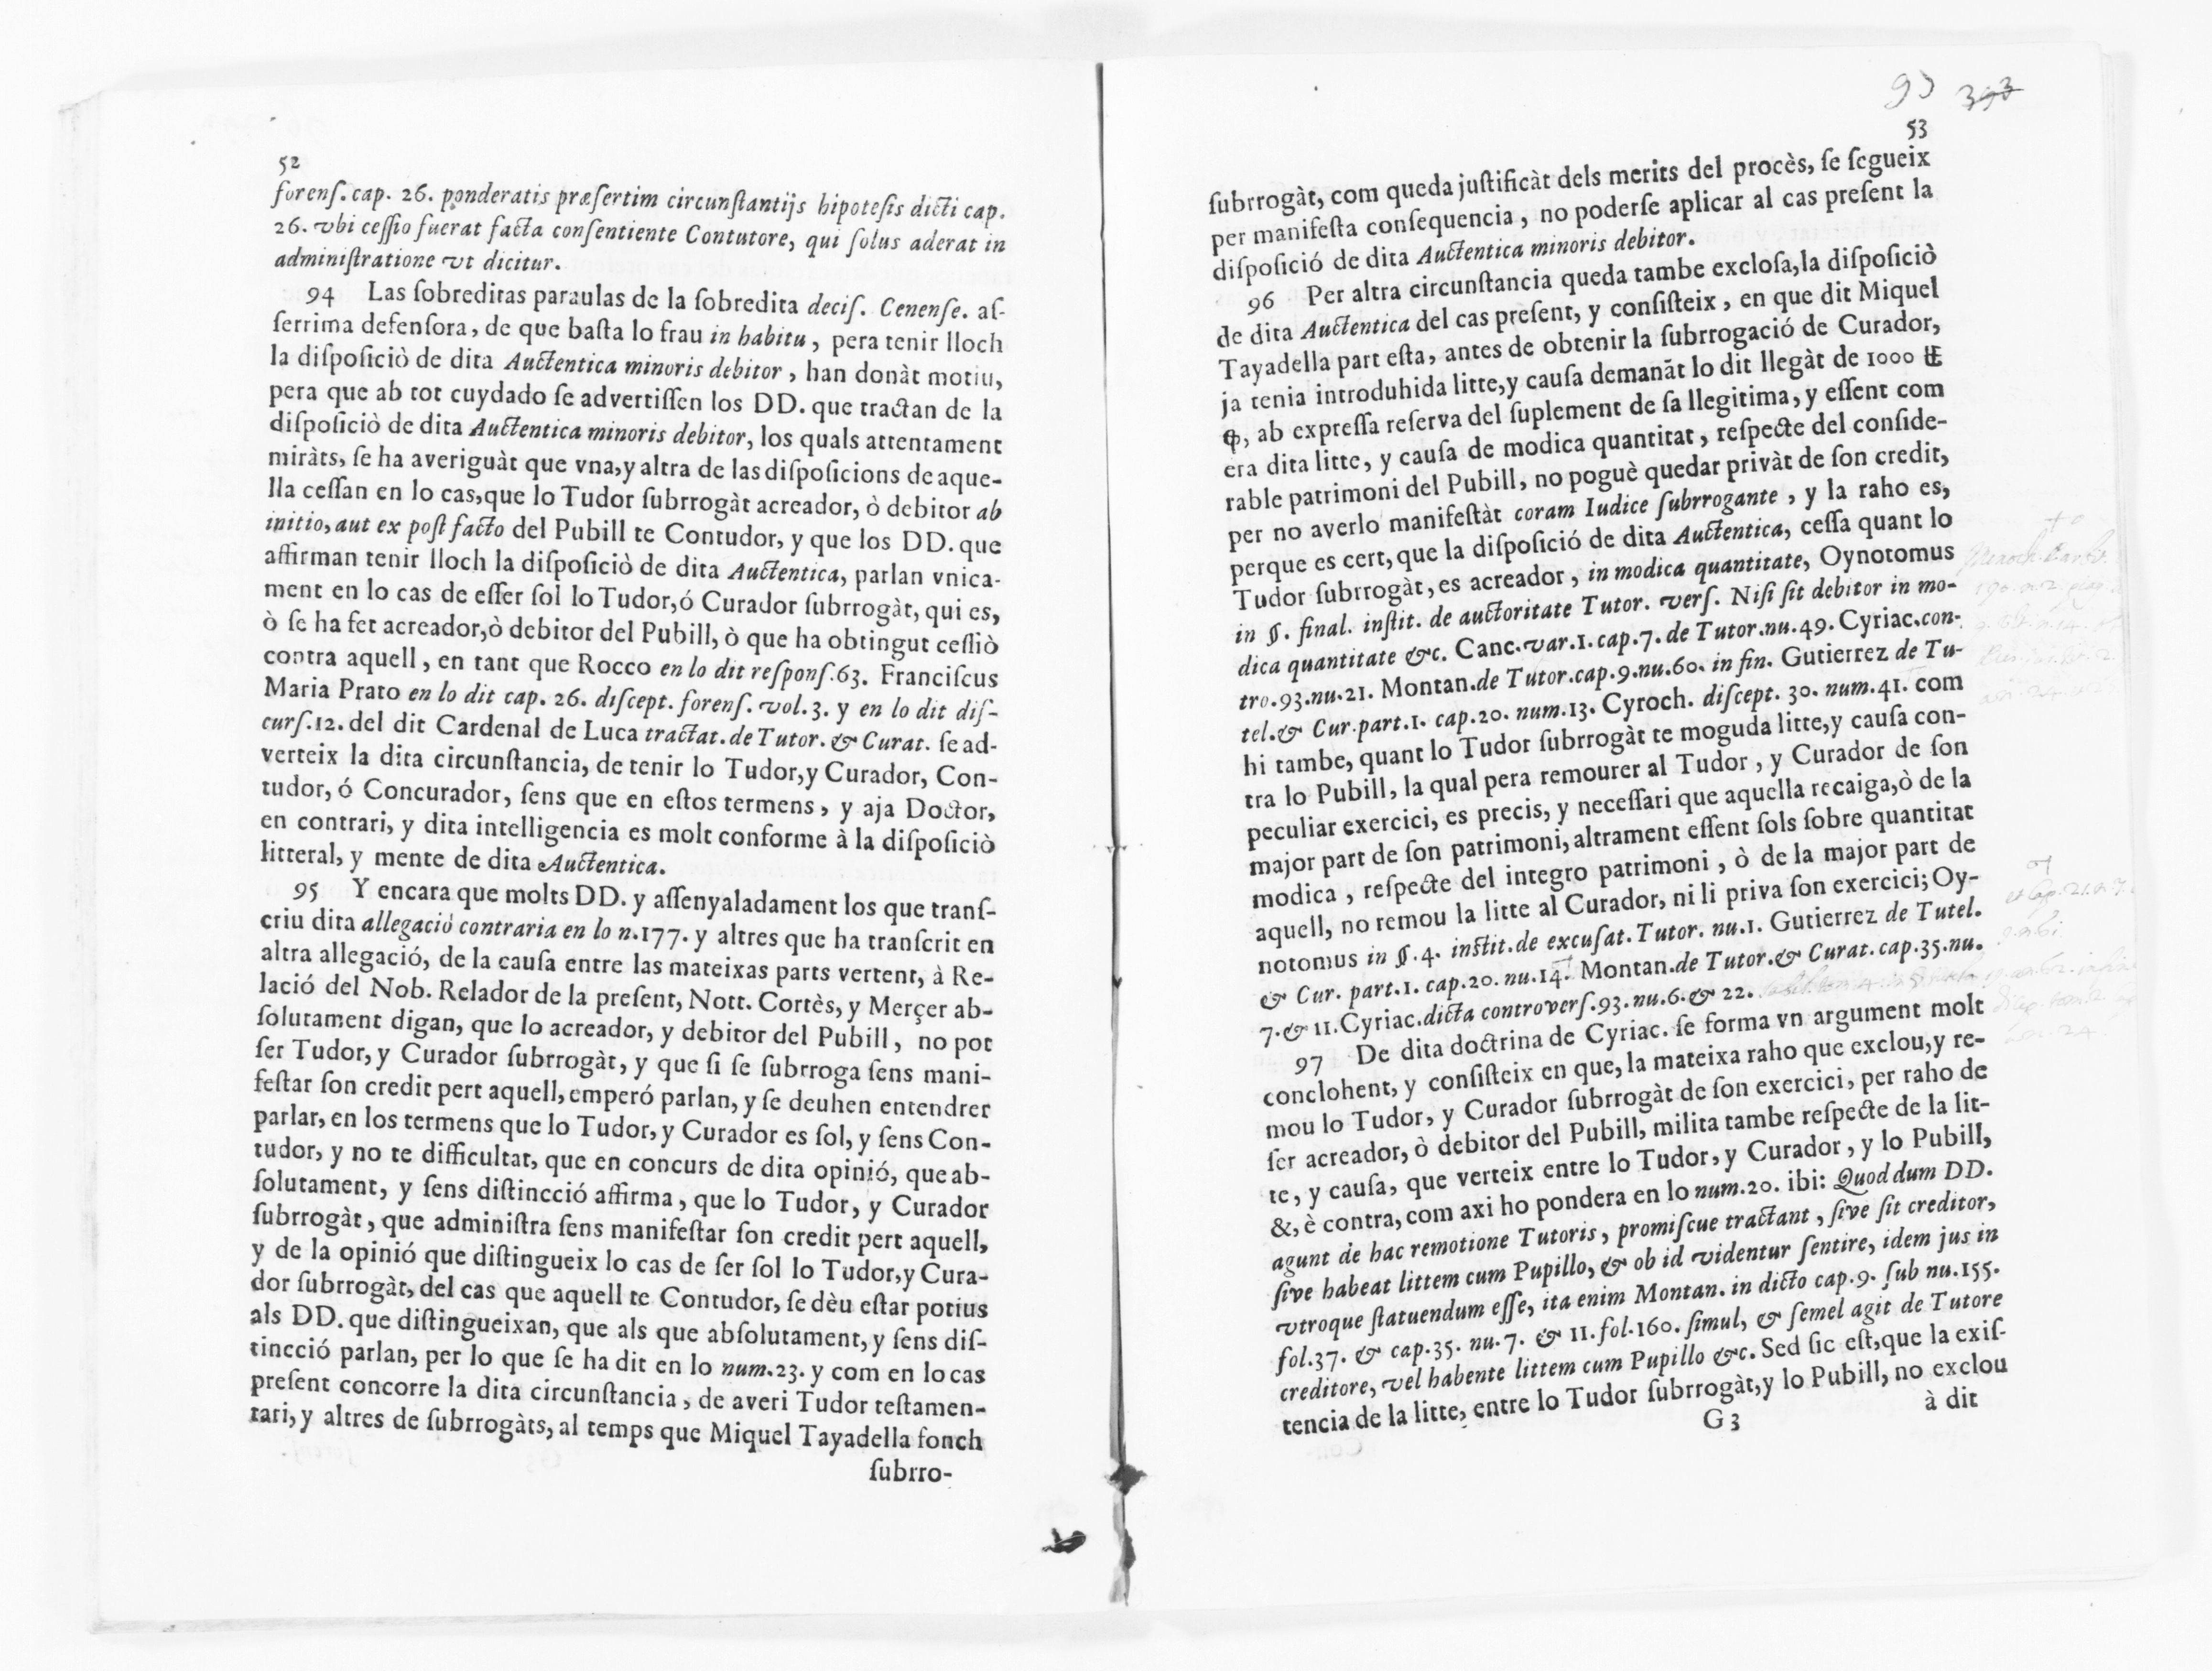 52
forenſ. cap. 26. ponderatis præſertim circunſtantijs hipoteſis dicti cap.
26. vbi ceſſio fuerat facta conſentiente Contutore, qui ſolus aderat in
adminiſtratione vt dicitur.
94 Las ſobreditas paraulas de la ſobredita deciſ. Cenenſe. aſ-
ſerrima defenſora, de que baſta lo frau in habitu, pera tenir lloch
la diſpoſiciò de dita Auctentica minoris debitor, han donàt motiu,
pera que ab tot cuydado ſe advertiſſen los DD. que tractan de la
diſpoſiciò de dita Auctentica minoris debitor, los quals attentament
miràts, ſe ha averiguàt que vna, y altra de las diſpoſicions de aque-
lla ceſſan en lo cas, que lo Tudor ſubrrogàt acreador, ò debitor ab
initio, aut ex poſt facto del Pubill te Contudor, y que los DD. que
affirman tenir lloch la diſpoſiciò de dita Auctentica, parlan vnica-
ment en lo cas de eſſer ſol lo Tudor, ó Curador ſubrrogàt, qui es,
ò ſe ha fet acreador, ò debitor del Pubill, ò que ha obtingut ceſſiò
contra aquell, en tant que Rocco en lo dit reſponſ. 63. Franciſcus
Maria Prato en lo dit cap. 26. diſcept. forenſ. vol. 3. y en lo dit diſ-
curſ. 12. del dit Cardenal de Luca tractat. de Tutor. & Curat. ſe ad-
verteix la dita circunſtancia, de tenir lo Tudor, y Curador, Con-
tudor, ó Concurador, ſens que en eſtos termens, y aja Doctor,
en contrari, y dita intelligencia es molt conforme à la diſpoſiciò
litteral, y mente de dita Auctentica.
95 Y encara que molts DD. y aſſenyaladament los que tranſ-
criu dita allegació contraria en lo n. 177. y altres que ha tranſcrit en
altra allegació, de la cauſa entre las mateixas parts vertent, à Re-
lació del Nob. Relador de la preſent, Nott. Cortès, y Merçer ab-
ſolutament digan, que lo acreador, y debitor del Pubill, no pot
ſer Tudor, y Curador ſubrrogàt, y que ſi ſe ſubrroga ſens mani-
feſtar ſon credit pert aquell, emperó parlan, y ſe deuhen entendrer
parlar, en los termens que lo Tudor, y Curador es ſol, y ſens Con-
tudor, y no te difficultat, que en concurs de dita opinió, que ab-
ſolutament, y ſens diſtincció affirma, que lo Tudor, y Curador
ſubrrogàt, que adminiſtra ſens manifeſtar ſon credit pert aquell,
y de la opinió que diſtingueix lo cas de ſer ſol lo Tudor, y Cura-
dor ſubrrogàt, del cas que aquell te Contudor, ſe dèu eſtar potius
als DD. que diſtingueixan, que als que abſolutament, y ſens diſ-
tincció parlan, per lo que ſe ha dit en lo num. 23. y com en lo cas
preſent concorre la dita circunſtancia, de averi Tudor teſtamen-
tari, y altres de ſubrrogàts, al temps que Miquel Tayadella fonch
ſubrro-
93 393
53
ſubrrogàt, com queda juſtificàt dels merits del procès, ſe ſegueix
per manifeſta conſequencia, no poderſe aplicar al cas preſent la
diſpoſició de dita Auctentica minoris debitor.
96 Per altra circunſtancia queda tambe excloſa, la diſpoſiciò
de dita Auctentica del cas preſent, y conſiſteix, en que dit Miquel
Tayadella part eſta, antes de obtenir la ſubrrogació de Curador,
ja tenia introduhida litte, y cauſa demanāt lo dit llegàt de 1000 ₶
, ab expreſſa reſerva del ſuplement de ſa llegitima, y eſſent com
era dita litte, y cauſa de modica quantitat, reſpecte del conſide-
rable patrimoni del Pubill, no poguè quedar privàt de ſon credit,
per no averlo manifeſtàt coram Iudice ſubrrogante, y la raho es,
perque es cert, que la diſpoſició de dita Auctentica, ceſſa quant lo
Tudor ſubrrogàt, es acreador, in modica quantitate, Oynotomus
in §. final. inſtit. de auctoritate Tutor. verſ. Niſi ſit debitor in mo-
dica quantitate &c. Canc. var. 1. cap. 7. de Tutor. nu. 49. Cyriac. con-
tro. 93. nu. 21. Montan. de Tutor. cap. 9. nu. 60. in fin. Gutierrez de Tu-
tel. & Cur. part. 1. cap. 20. num. 13. Cyroch. diſcept. 30. num. 41. com
hi tambe, quant lo Tudor ſubrrogàt te moguda litte, y cauſa con-
tra lo Pubill, la qual pera remourer al Tudor, y Curador de ſon
peculiar exercici, es precis, y neceſſari que aquella recaiga, ò de la
major part de ſon patrimoni, altrament eſſent ſols ſobre quantitat
modica, reſpecte del integro patrimoni, ò de la major part de
aquell, no remou la litte al Curador, ni li priva ſon exercici; Oy-
notomus in §. 4. inſtit. de excuſat. Tutor. nu. 1. Gutierrez de Tutel.
& Cur. part. 1. cap. 20. nu. 14. Montan. de Tutor. & Curat. cap. 35. nu.
7. & 11. Cyriac. dicta controverſ. 93. nu. 6. & 22.
97 De dita doctrina de Cyriac. ſe forma vn argument molt
conclohent, y conſiſteix en que, la mateixa raho que exclou, y re-
mou lo Tudor, y Curador ſubrrogàt de ſon exercici, per raho de
ſer acreador, ò debitor del Pubill, milita tambe reſpecte de la lit-
te, y cauſa, que verteix entre lo Tudor, y Curador, y lo Pubill,
&, è contra, com axi ho pondera en lo num. 20. ibi: Quod dum DD.
agunt de hac remotione Tutoris, promiſcue tractant, ſive ſit creditor,
ſive habeat littem cum Pupillo, & ob id videntur ſentire, idem jus in
vtroque ſtatuendum eſſe, ita enim Montan. in dicto cap. 9. ſub nu. 155.
fol. 37. & cap. 35. nu. 7. & 11. fol. 160. ſimul, & ſemel agit de Tutore
creditore, vel habente littem cum Pupillo &c. Sed ſic eſt, que la exiſ-
tencia de la litte, entre lo Tudor ſubrrogàt, y lo Pubill, no exclou
G 3
à dit